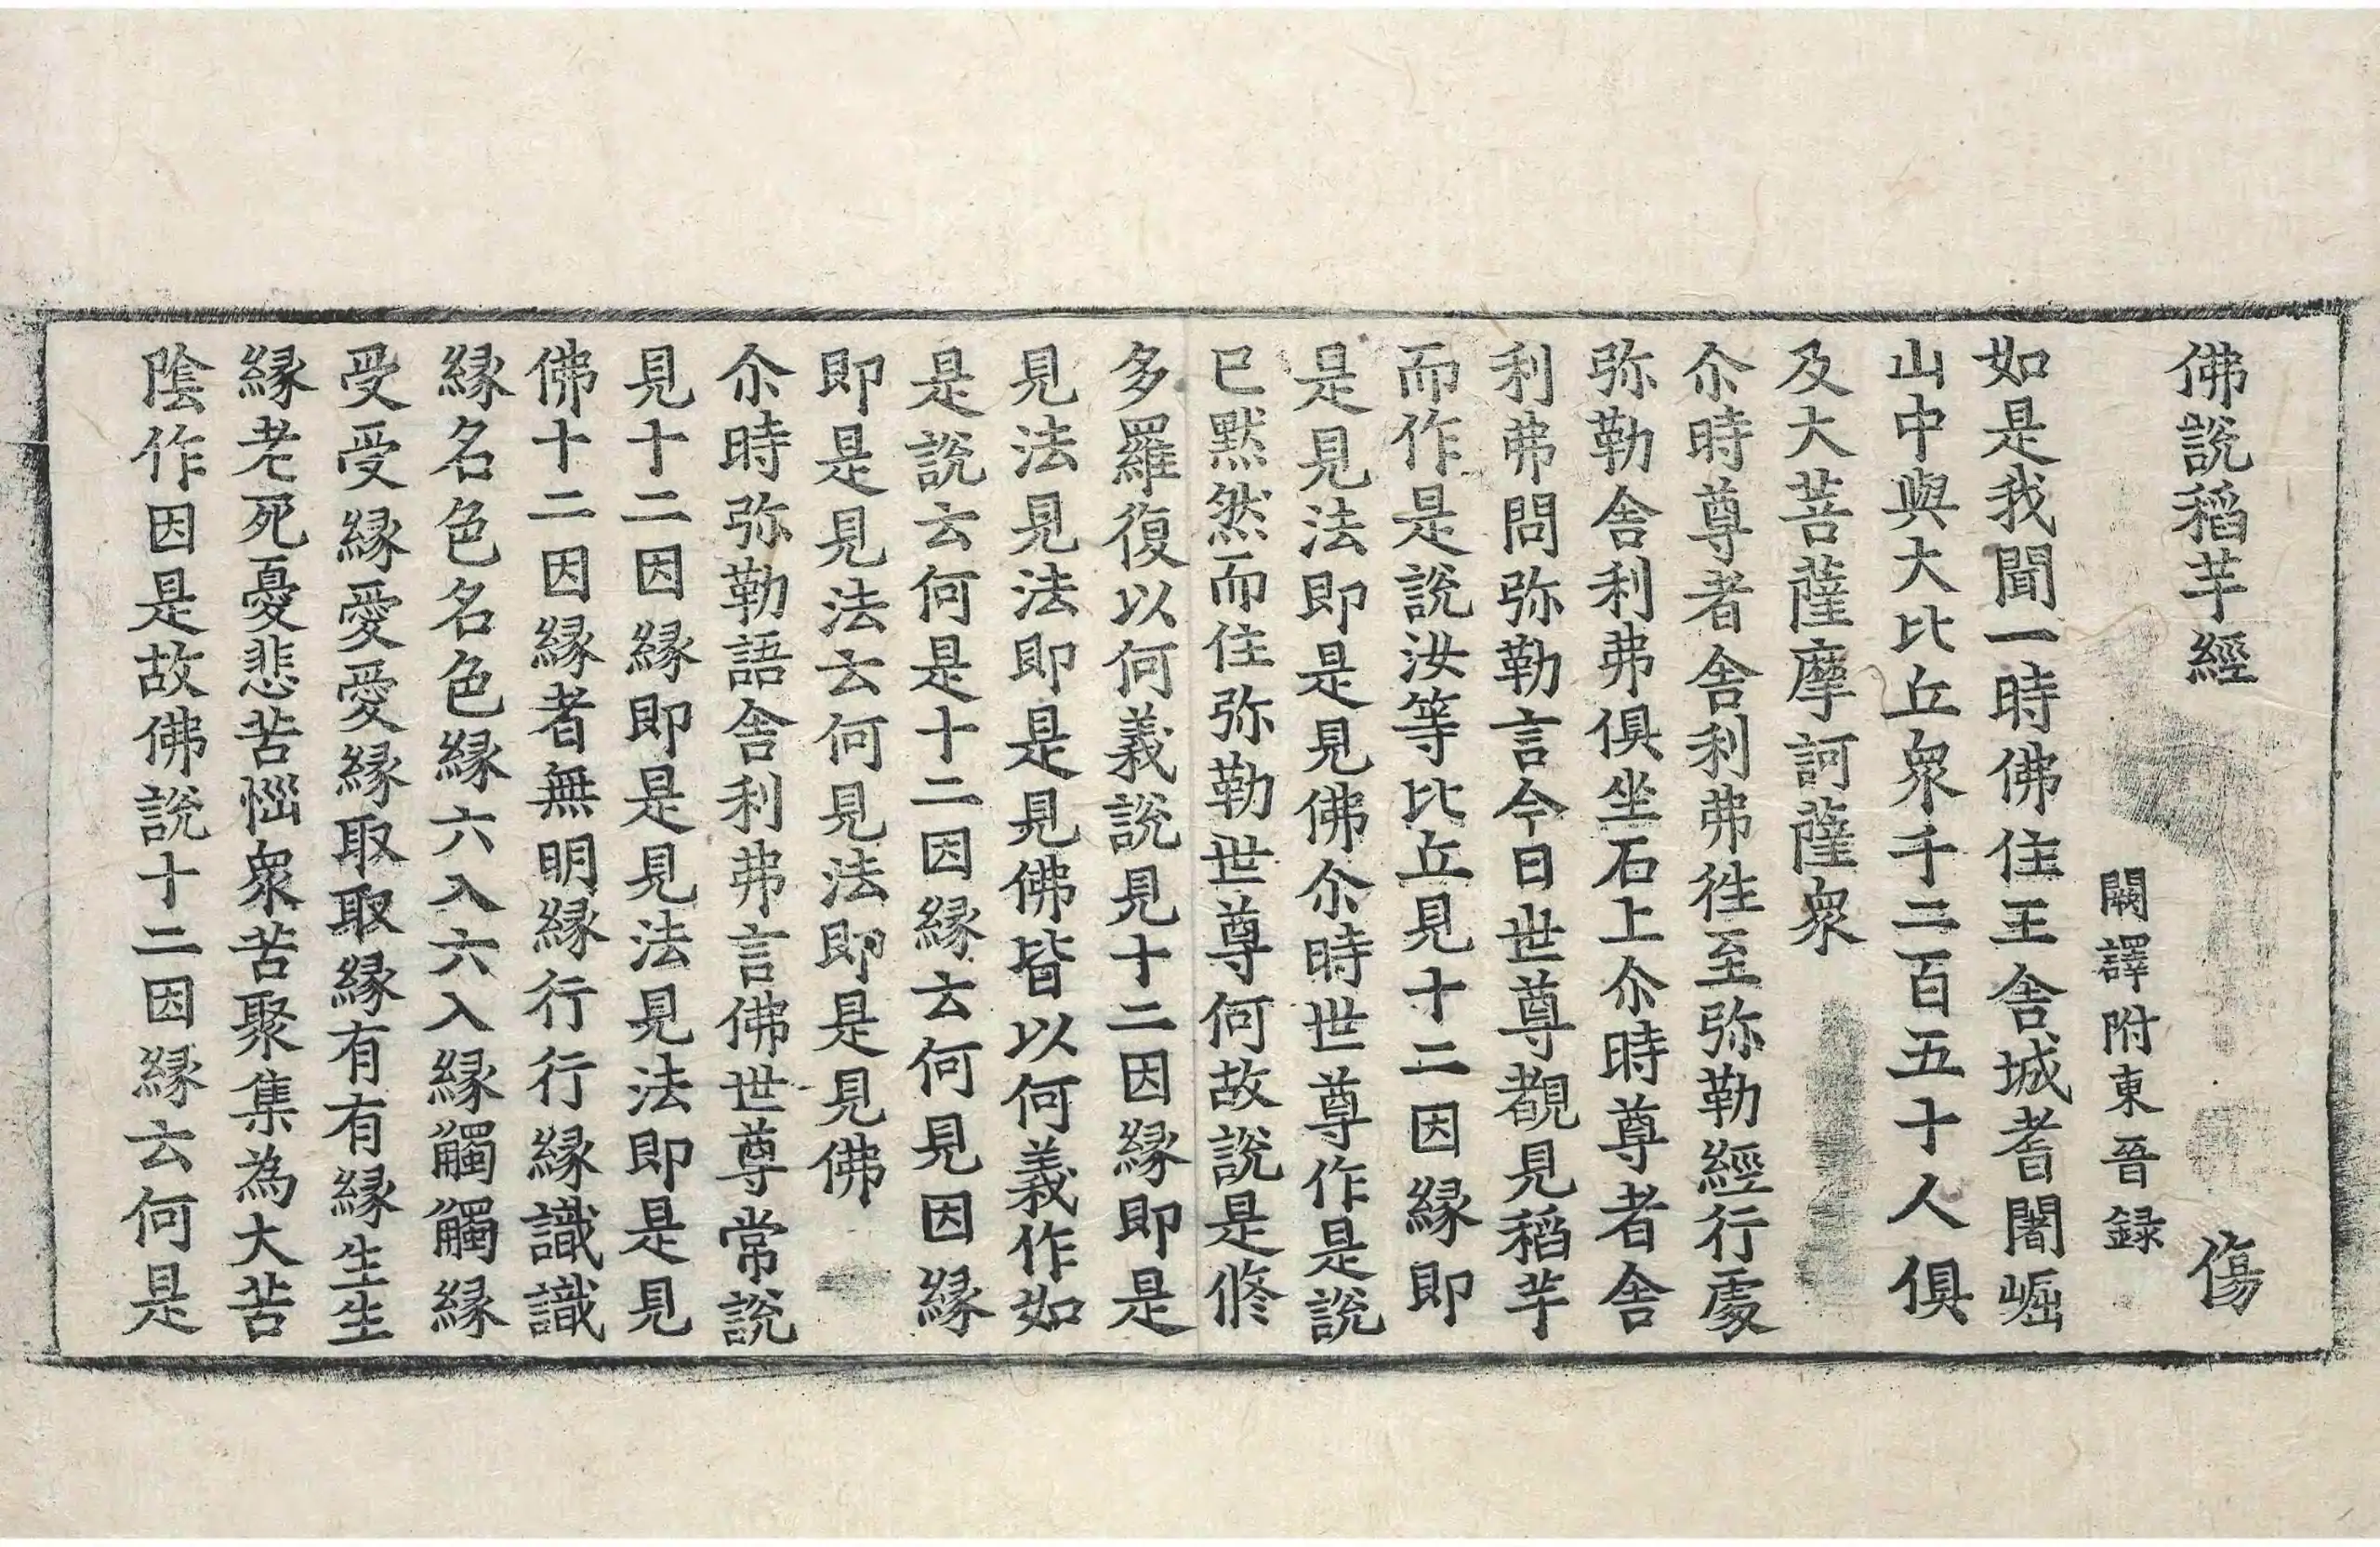 佛說稻芉經 傷
闕譯附東晉録
如是我聞一時佛住王舍城耆闍崛
山中與大比丘衆千二百五十人俱
及大菩薩摩訶薩衆
尒時尊者舍利弗徃至弥勒經行處
弥勒舍利弗俱坐石上尒時尊者舍
利弗問弥勒言今日世尊覩見稻芉
而作是說汝等比丘見十二因縁即
是見法即是見佛尒時世尊作是說
已默然而住弥勒世尊何故說是修
多羅復以何義說見十二因縁即是
見法見法即是見佛皆以何義作如
是說云何是十二因縁云何見因縁
即是見法云何見法即是見佛
尒時弥勒語舍利弗言佛世尊常說
見十二因縁即是見法見法即是見
佛十二因縁者無明縁行行縁識識
縁名色名色縁六入六入縁觸觸縁
受受縁愛愛縁取取縁有有縁生生
縁老死憂悲苦惱衆苦聚集為大苦
陰作因是故佛說十二因縁云何是